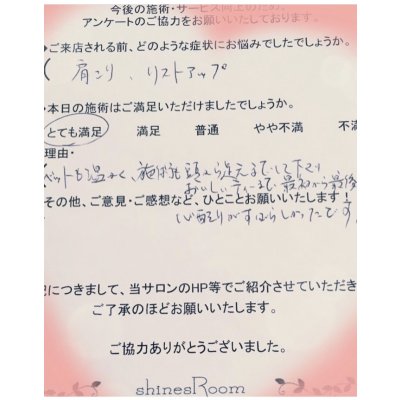 今後の施術・サービス向上のため、
アンケートのご協力をお願いいたしております。
・ご来店される前、どのような症状にお悩みでしたでしょうか。
( 肩こり、リストアップ
・本日の施術はご満足いただけましたでしょうか。
とても満足 満足 普通 やや不満 不満
理由・
ベットも温かく、施術も頭から足までして下さり
おいしいティーまで最初から最後
その他、ご意見・ご感想など、ひとことお願いいたします
心配りがすばらしかったです
記につきまして、当サロンのHP等でご紹介させていただき
ご了承のほどお願いいたします。
ご協力ありがとうございました。
shinesRoom